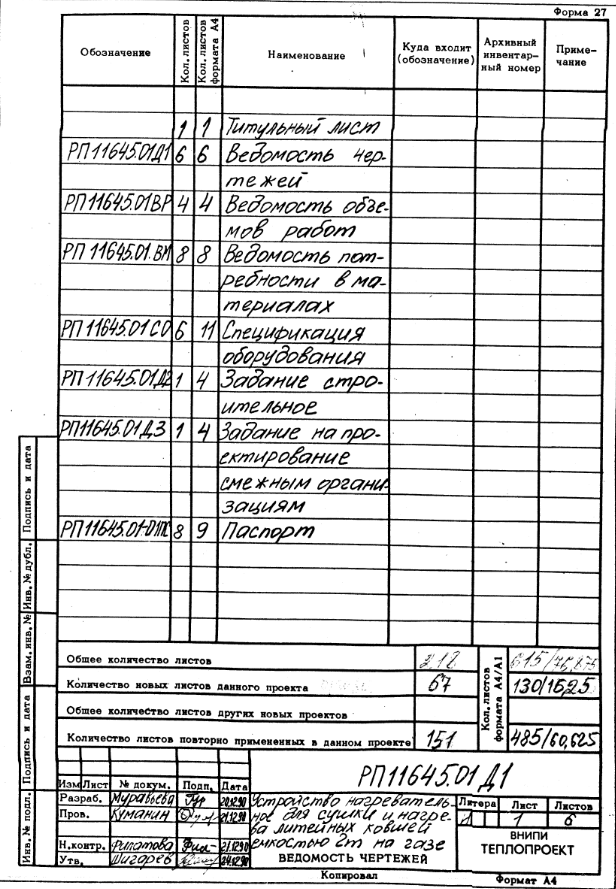 Форма 27
Обозначение Кол. листов Кол. листов формата А4 Наименование Куда входит (обозначение) Архивный инвентарный номер Примечание
1 1 Титульный лист
РП11645.01Д1 6 6 Ведомость чер-
тежей
РП11645.01ВР 4 4 Ведомость объе-
мов работ
РП11645.01.ВМ 8 8 Ведомость пот-
ребности в ма-
териалах
РП11645.01СО 6 11 Спецификация
оборудования
РП11645.01Д2 1 4 Задание стро-
ительное
РП11645.01ДЗ 1 4 Задание на про-
ектирование
смежным органи-
зациям
РП11645.01-01ПС 8 9 Паспорт
Общее количество листов 218 Кол. листов формата А4/А1 615/76,875
Количество новых листов данного проекта 67 130/16,25
Общее количество листов других новых проектов
Количество листов повторно примененных в данном проекте 151 485/60,625
РП11645.01Д1
Изм Лист № докум. Подп. Дата
Разраб. Муравьева 20.12.90
Пров. Куманин 21.12.90
Н.контр. Филатова 21.12.90
Утв. Шигарев 24.12.90
Устройство нагреватель-
ное для сушки и нагре-
ва литейных ковшей
емкостью 6т на газе
ВЕДОМОСТЬ ЧЕРТЕЖЕЙ
Литера Лист Листов
1 6
ВНИПИ
ТЕПЛОПРОЕКТ
Копировал Формат А4
Инв. № подл. Подпись и дата Взам. инв. № Инв. № дубл. Подпись и дата